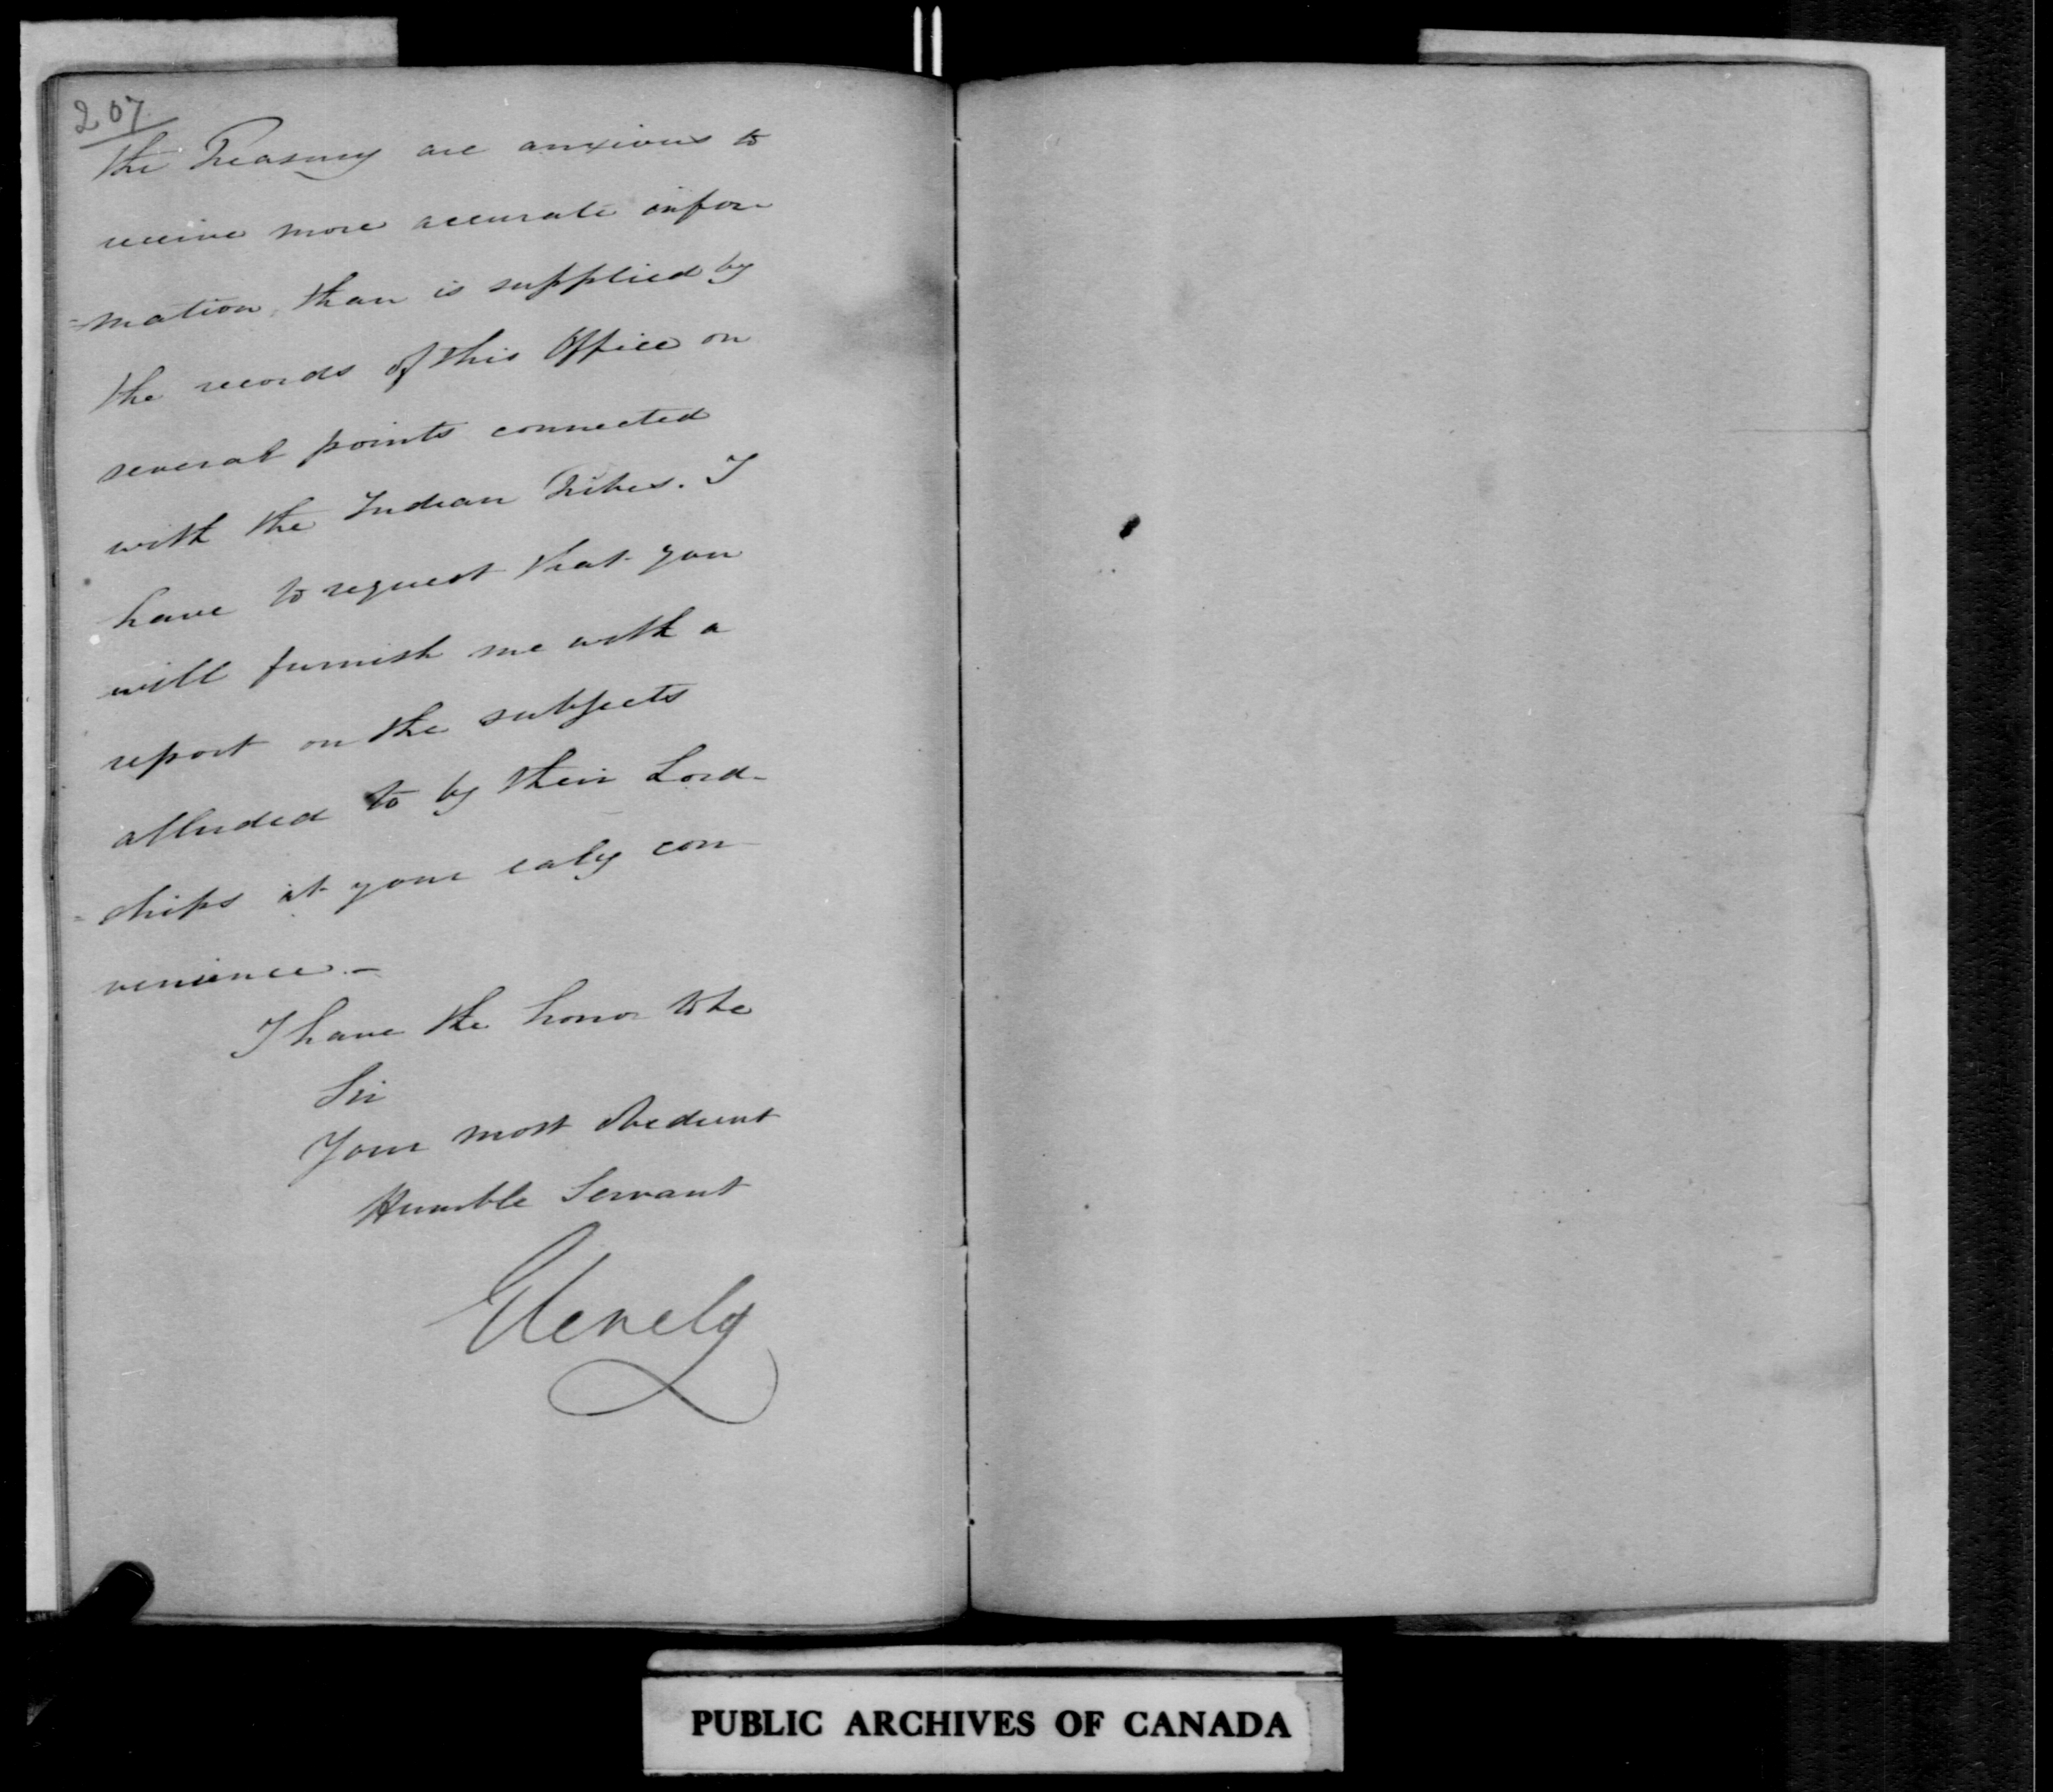 207
the Treasury are anxious to
receive more accurate infor
=mation than is supplied by
the records of this Office on
several points connected
with the Indian Tribes. I
have to request that you
will furnish me with a
report on the subjects
alluded to by their Lord-
=ships at your ealy con
venience. -
I have the honor to be
Sir
Your most obedient
Humble Servant
Glenelg
PUBLIC ARCHIVES OF CANADA